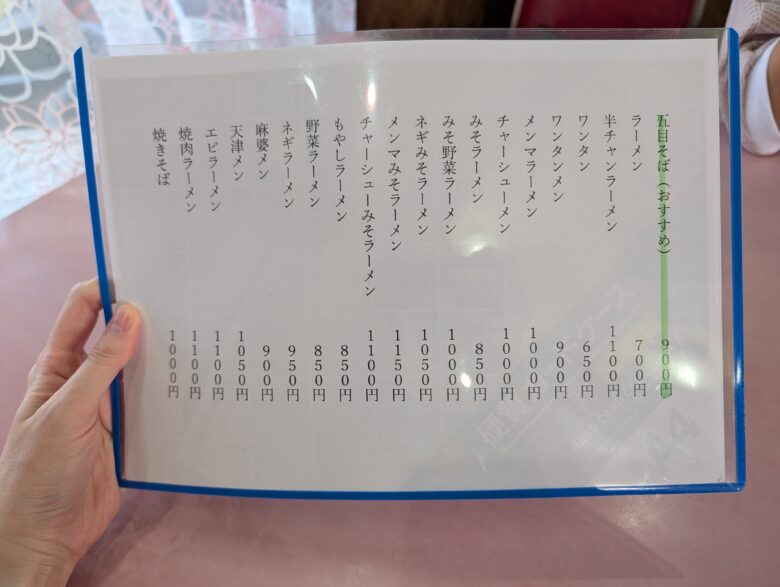 五目そば（おすすめ） 900円
ラーメン 700円
半チャンラーメン 1100円
ワンタン 650円
ワンタンメン 900円
メンマラーメン 1000円
チャーシューメン 1000円
みそラーメン 850円
みそ野菜ラーメン 1000円
ネギみそラーメン 1050円
メンマみそラーメン 1150円
チャーシューみそラーメン 1100円
もやしラーメン 850円
野菜ラーメン 850円
ネギラーメン 950円
麻婆メン 900円
天津メン 1050円
エビラーメン 1100円
焼肉ラーメン 1100円
焼きそば 1000円
A4